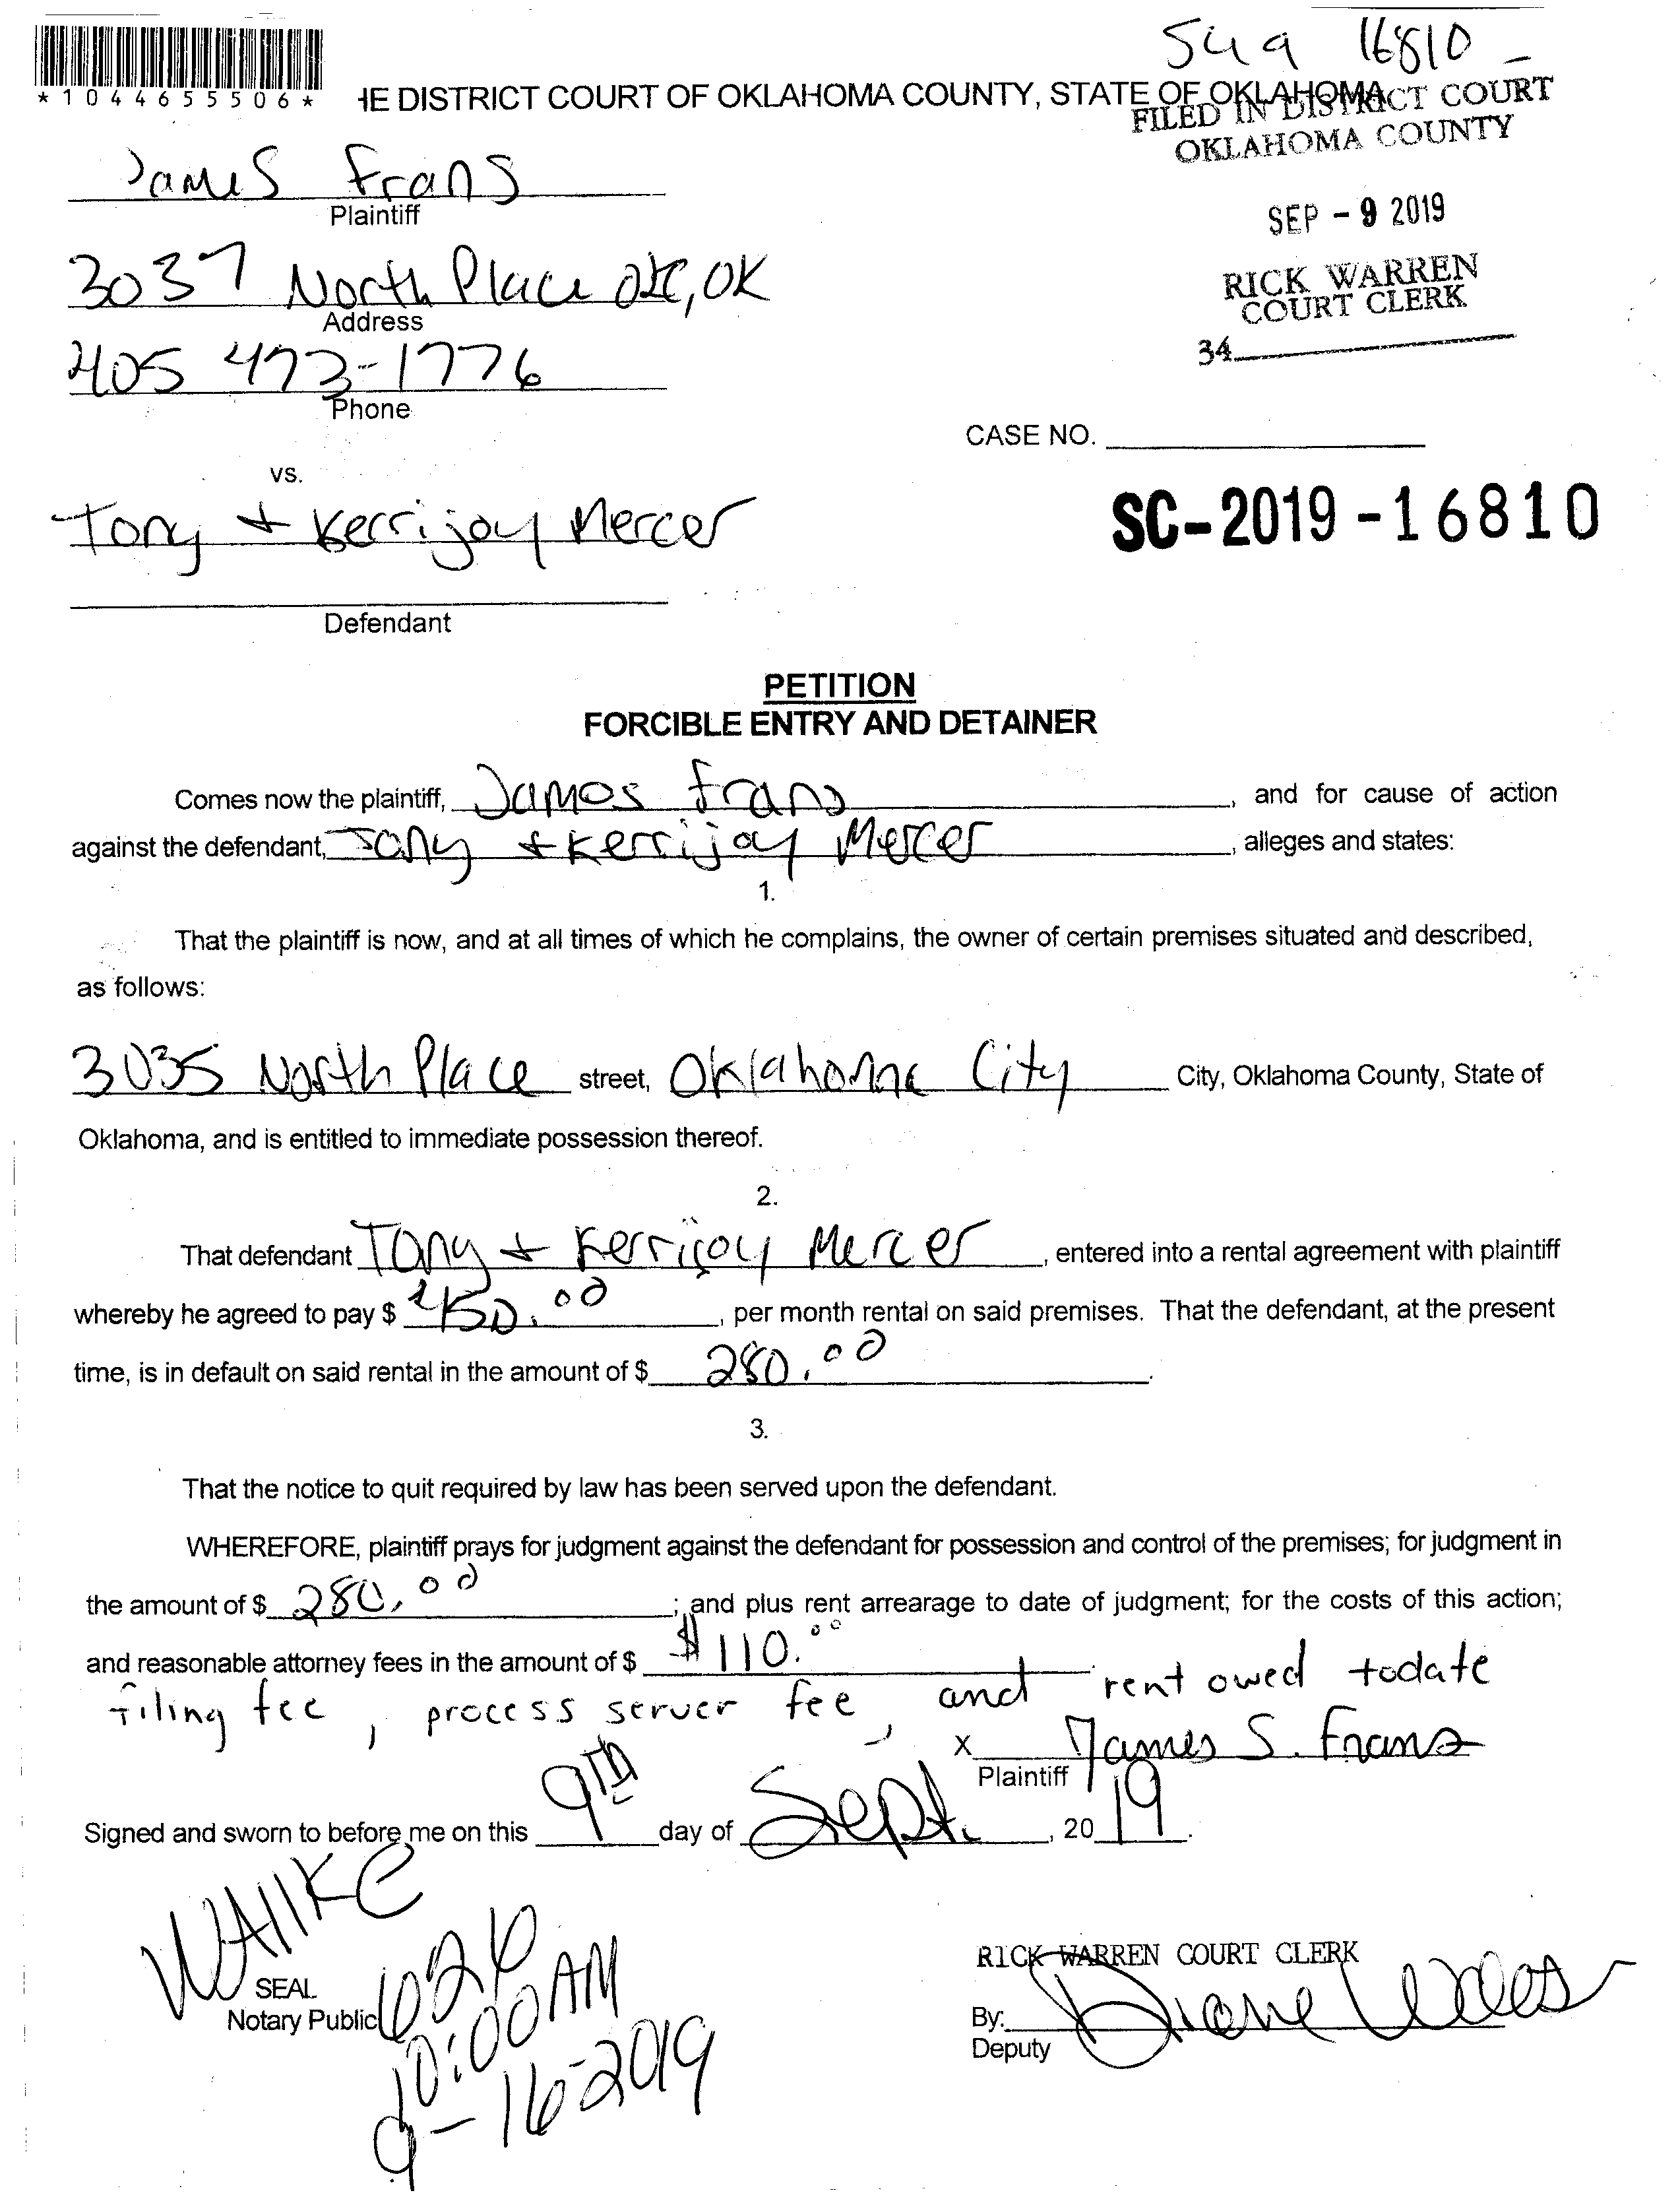 549 16810
*1044655506*
HE DISTRICT COURT OF OKLAHOMA COUNTY, STATE OF OKLAHOMA
FILED IN DISTRICT COURT
OKLAHOMA COUNTY
James Frans
Plaintiff
SEP - 9 2019
3037 North Place OKC, OK
Address
RICK WARREN
COURT CLERK
34
405 473-1776
Phone
CASE NO.
vs.
Tony & Kerrijoy Mercer
SC-2019-16810
Defendant
PETITION
FORCIBLE ENTRY AND DETAINER
Comes now the plaintiff, James Frans, and for cause of action
against the defendant, Tony & Kerrijoy Mercer, alleges and states:
1.
That the plaintiff is now, and at all times of which he complains, the owner of certain premises situated and described,
as follows:
3035 North Place street, Oklahoma City City, Oklahoma County, State of
Oklahoma, and is entitled to immediate possession thereof.
2.
That defendant Tony & Kerrijoy Mercer, entered into a rental agreement with plaintiff
whereby he agreed to pay $ 450.00, per month rental on said premises. That the defendant, at the present
time, is in default on said rental in the amount of $ 280.00.
3.
That the notice to quit required by law has been served upon the defendant.
WHEREFORE, plaintiff prays for judgment against the defendant for possession and control of the premises; for judgment in
the amount of $ 280.00; and plus rent arrearage to date of judgment; for the costs of this action;
and reasonable attorney fees in the amount of $ $110.00
Filing fee, process server fee, and rent owed todate
x James S. Frans
Plaintiff
Signed and sworn to before me on this 9TH day of Sept., 2019.
WAIIKE
SEAL
Notary Public
10:00AM
9-16-2019
RICK WARREN COURT CLERK
By: Diane
Deputy